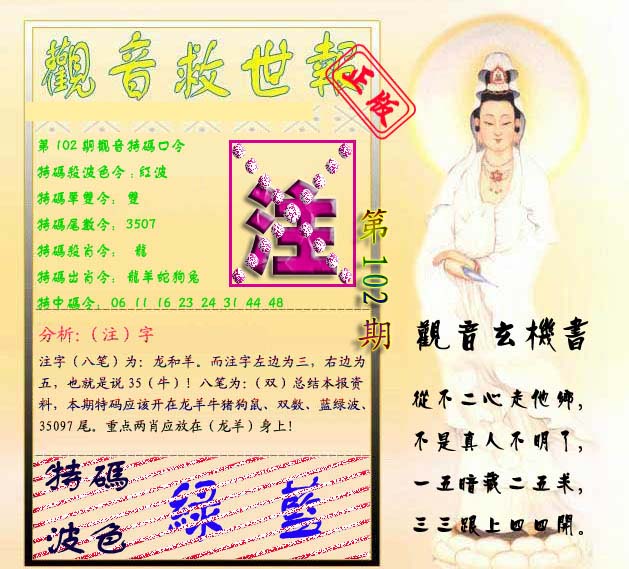 觀音救世報
正版
第102期觀音特碼口令
特碼殺波色令:紅波
特碼單雙令: 雙
特碼尾數令: 3507
特碼殺肖令: 龍
特碼出肖令: 龍羊蛇狗兔
特中碼令: 06 11 16 23 24 31 44 48
注
第102期
分析:（注）字
注字（八笔）为：龙和羊。而注字左边为三，右边为
五，也就是说35（牛）！八笔为：（双）总结本报资
料，本期特码应该开在龙羊牛猪狗鼠、双数、蓝绿波、
35097尾。重点两肖应放在（龙羊）身上！
特碼
波色
綠 藍
觀音玄機書
從不二心走他鄉，
不是真人不明了，
一五暗藏二五来，
三三跟上四四開。